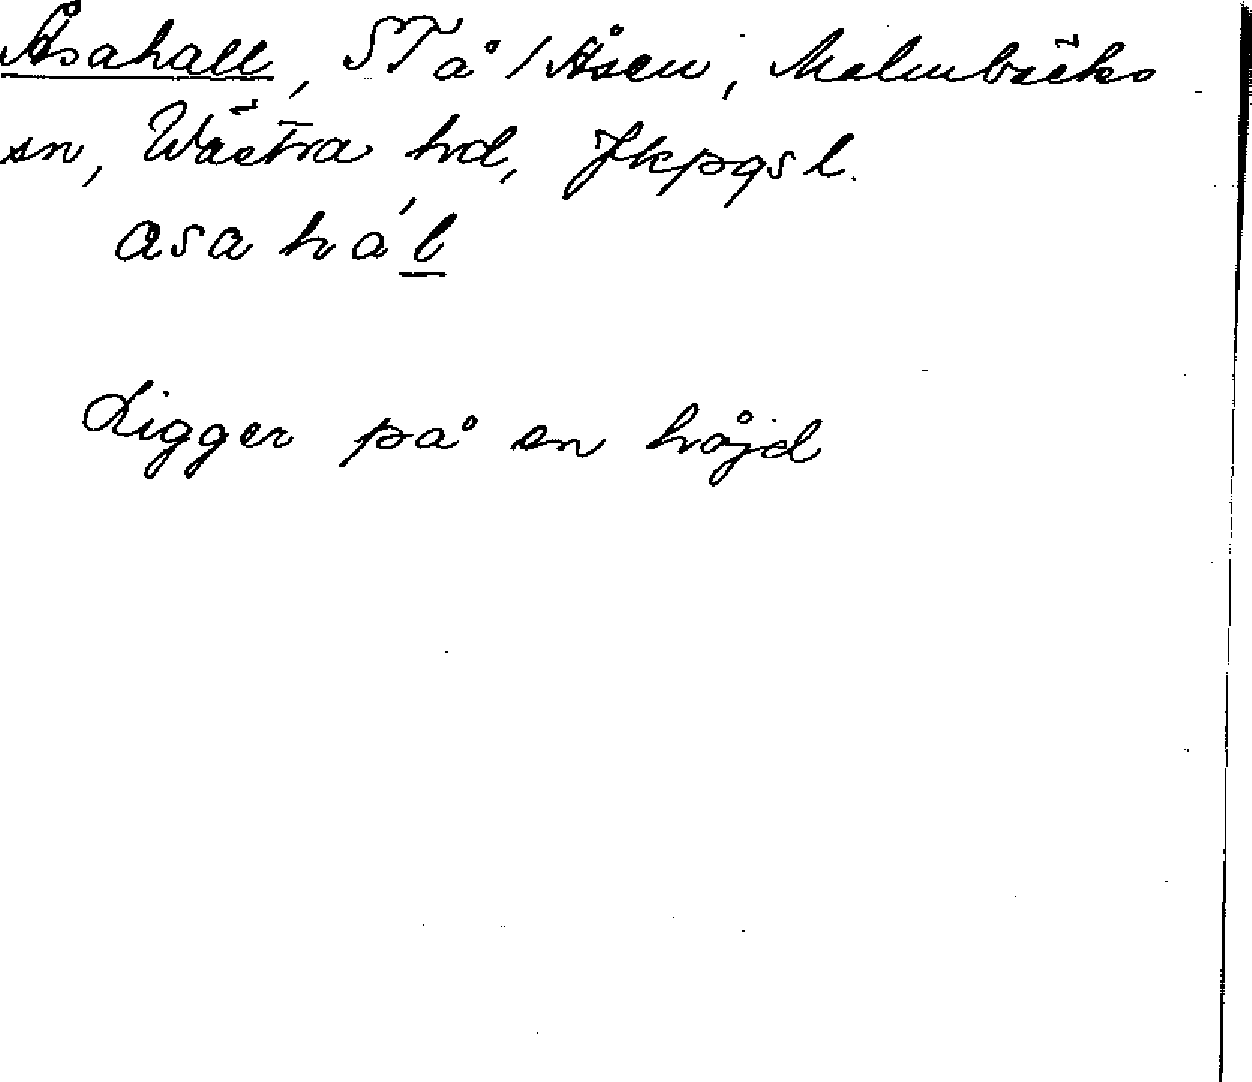 Åsahall, ST å /Åsen, Malmbäcks
sn, Västra hd, Jkpgs l.
asa hál
Ligger på en höjd